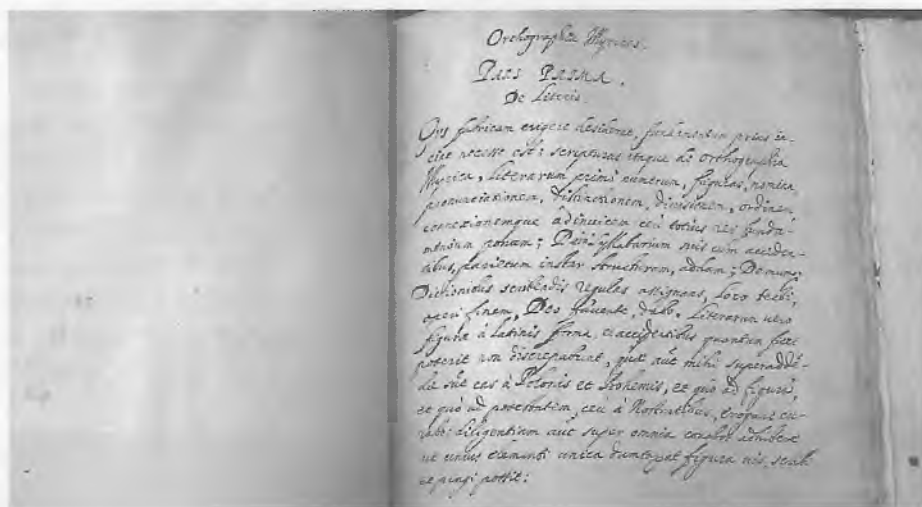 Orthographiæ Illyricæ.
PARS PRIMA.
De Literis.
Qui fabricam erigere desiderat, fundamentum prius ja-
cere necesse est: scripturus itaque de Orthographia
Illyrica, Literarum primò numerum, figuras, nomina
pronunciationem, distinctionem, divisionem, ordinem
connexionemque adinvicem ceu totius rei funda-
mentum ponam; Deinde syllabarum suis cum acciden-
tibus, parietum instar structuram, addam; Demum,
Dictionibus scribendis regulas assignans, loco tecti,
operi finem, Deo favente, dabo. Literarum vero
figuræ à Latinis forma, et accidentibus quantum fieri
poterit non discrepabunt, quæ aut mihi superadden-
dæ sūt eas à Polonis et Bohemis, et quo ad figuram,
et quo ad potestatem, ceu à Nostratibus,
diligentiam aut super omnia conabor adhibere
ut unius elementi unica dumtaxat figura
pingi possit: